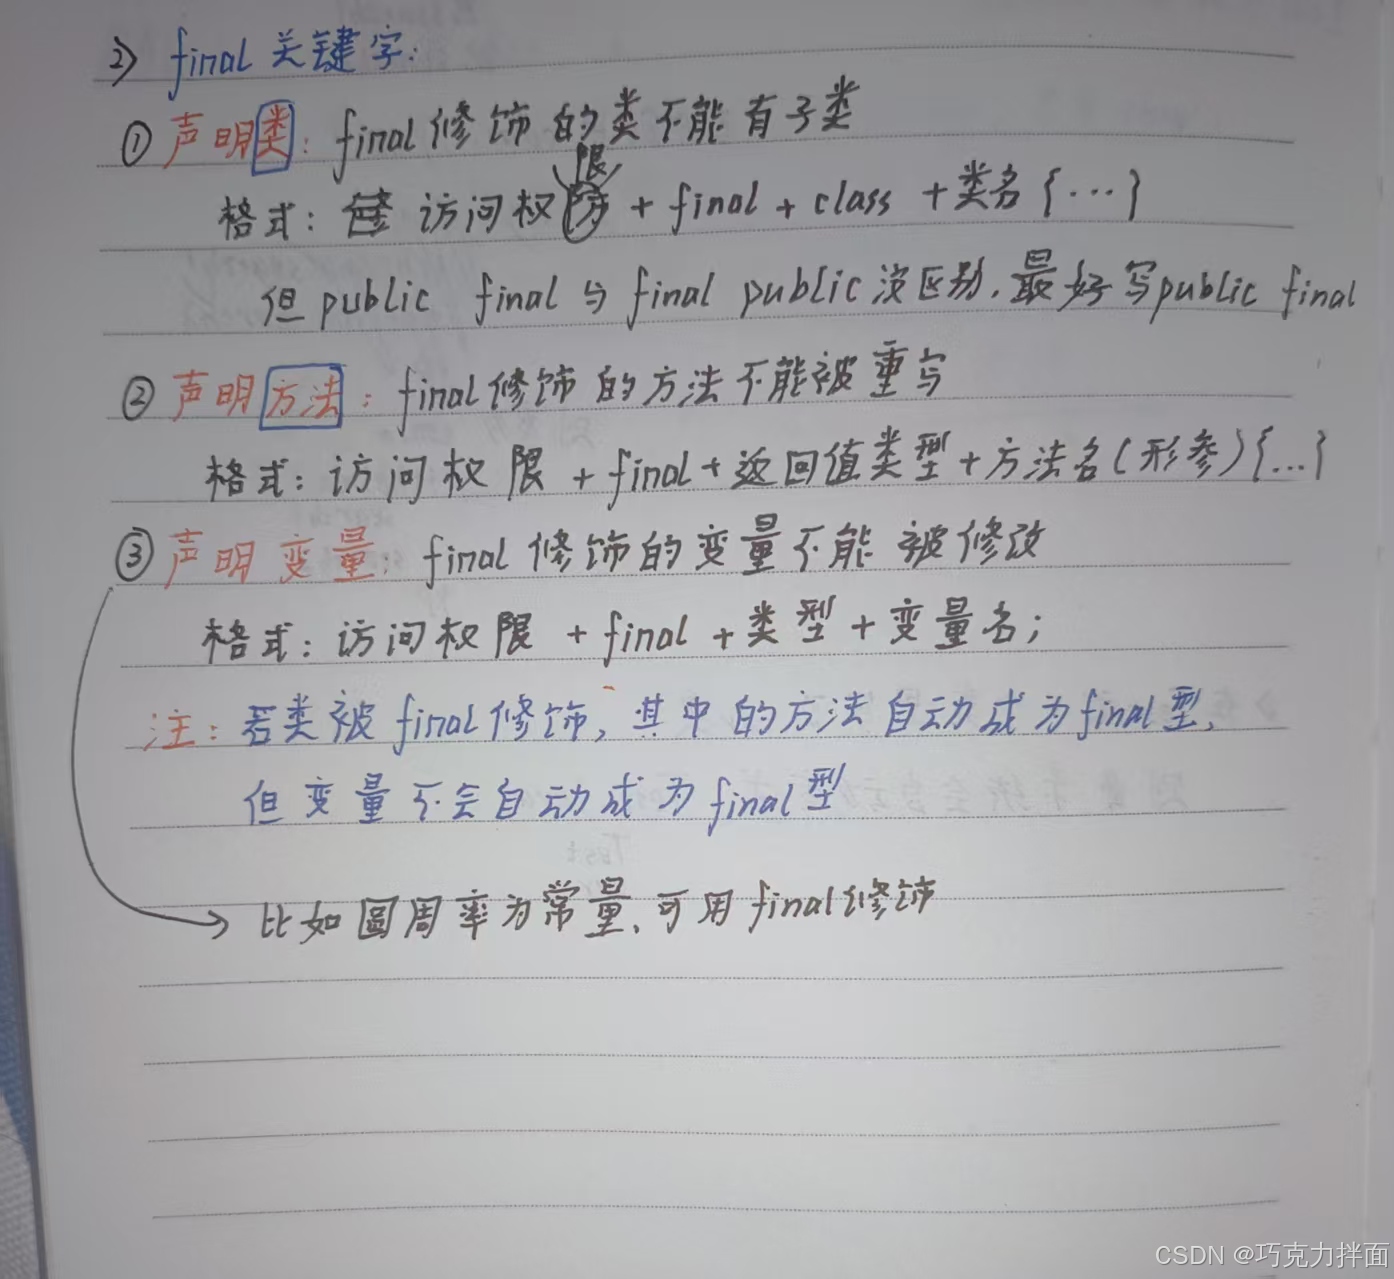 2) final 关键字:
① 声明类: final修饰的类不能有子类
格式: 访问权限 + final + class + 类名{…}
但 public final 与 final public 没区别.最好写public final
② 声明方法: final修饰的方法不能被重写
格式: 访问权限 + final + 返回值类型 + 方法名(形参){…}
③ 声明变量: final修饰的变量不能被修改
格式: 访问权限 + final + 类型 + 变量名;
注: 若类被final修饰, 其中的方法自动成为final型,
但变量不会自动成为final型
→ 比如圆周率为常量,可用final修饰
CSDN @巧克力拌面